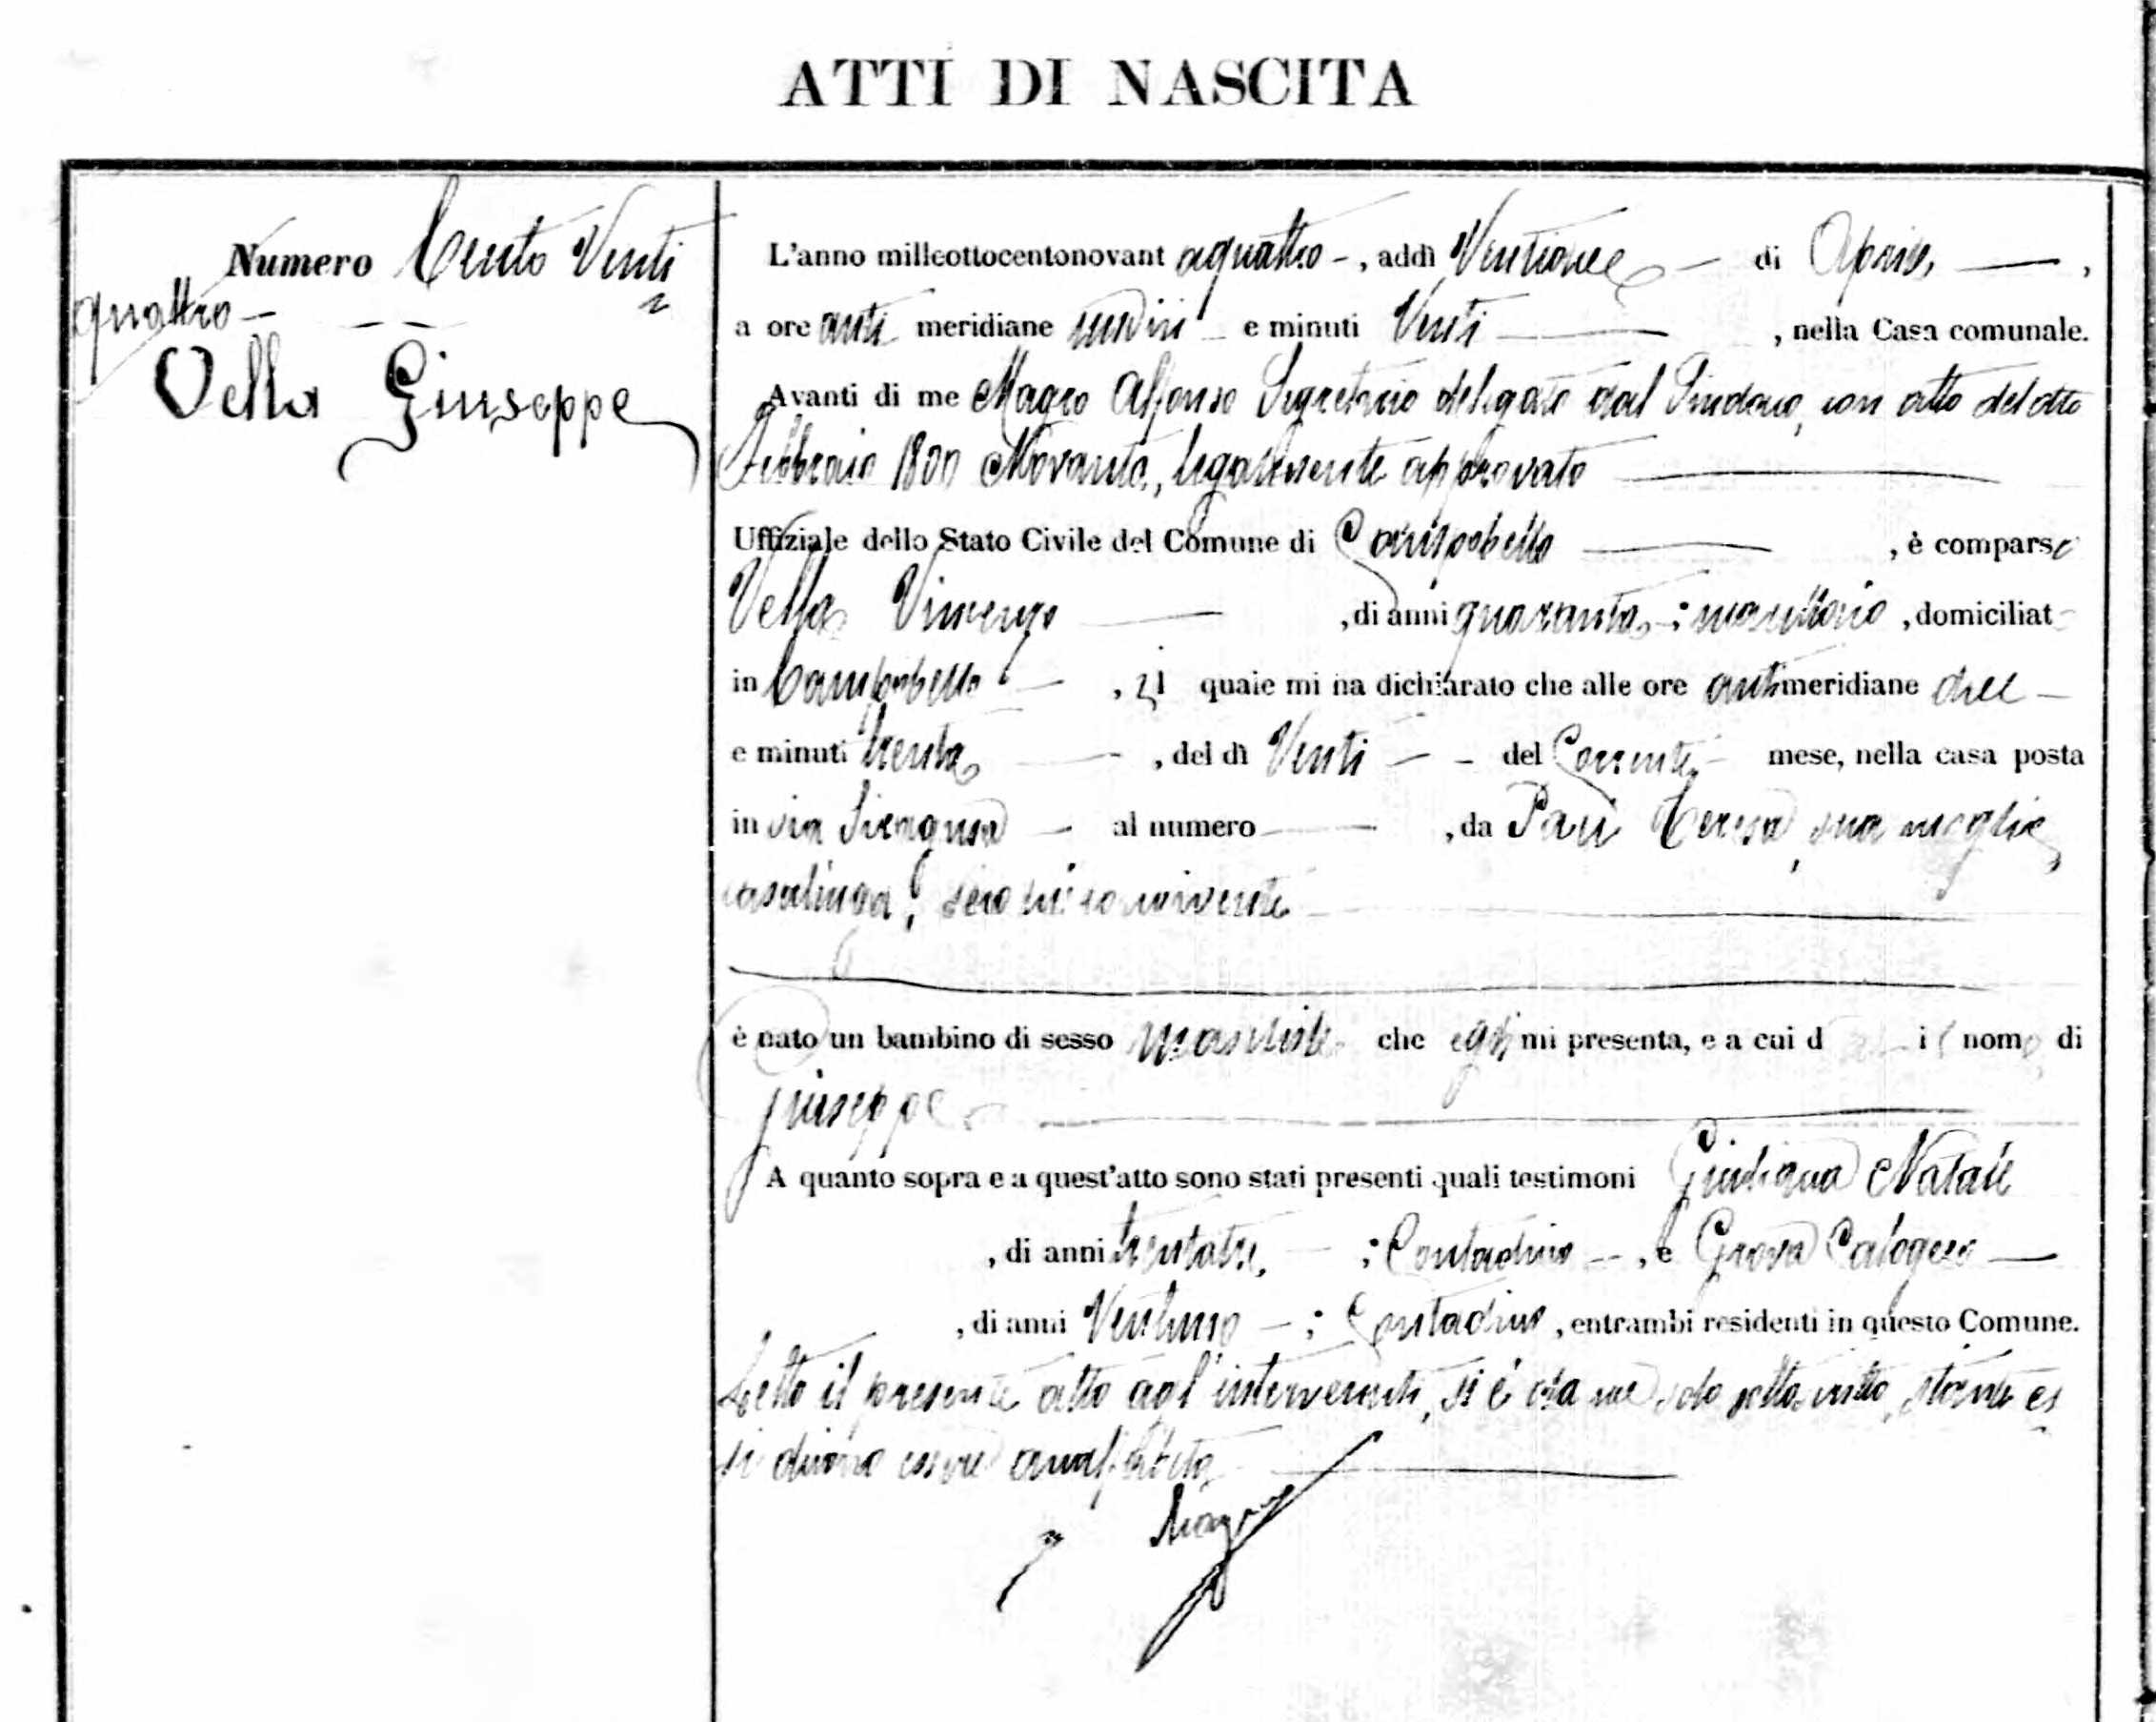 ATTI DI NASCITA
Numero Cento Venti
quattro
Vella Giuseppe
L'anno milleottocentonovant aquattro -, addì di Aprile,
a ore anti meridiane undici e minuti Venti, nella Casa comunale.
Avanti di me Magro Alfonso Segretario delegato dal Sindaco, con atto del otto
Febbraio 1800 Novanta, legalmente approvato
Uffiziale dello Stato Civile del Comune di Campobello, è comparso
Vella Vincenzo, di anni quaranta;, domiciliat
in Campobello, il quale mi ha dichiarato che alle ore antimeridiane
e minuti trenta, del dì Venti - - del Corrente mese, nella casa posta
in via Siragusa al numero, da Paci Teresa, sua moglie,
casalinga, seco lui convivente
è nato un bambino di sesso maschile che egli mi presenta, e a cui d il nome di
Giuseppe
A quanto sopra e a quest'atto sono stati presenti quali testimoni Giuliana Natale
, di anni trentatre, ; Contadino, e Calogero
, di anni Ventuno -; Contadino, entrambi residenti in questo Comune.
Letto il presente atto agl'intervenuti, si è da me solo sottoscritto, stante es
si dicono essere analfabeta
Magro